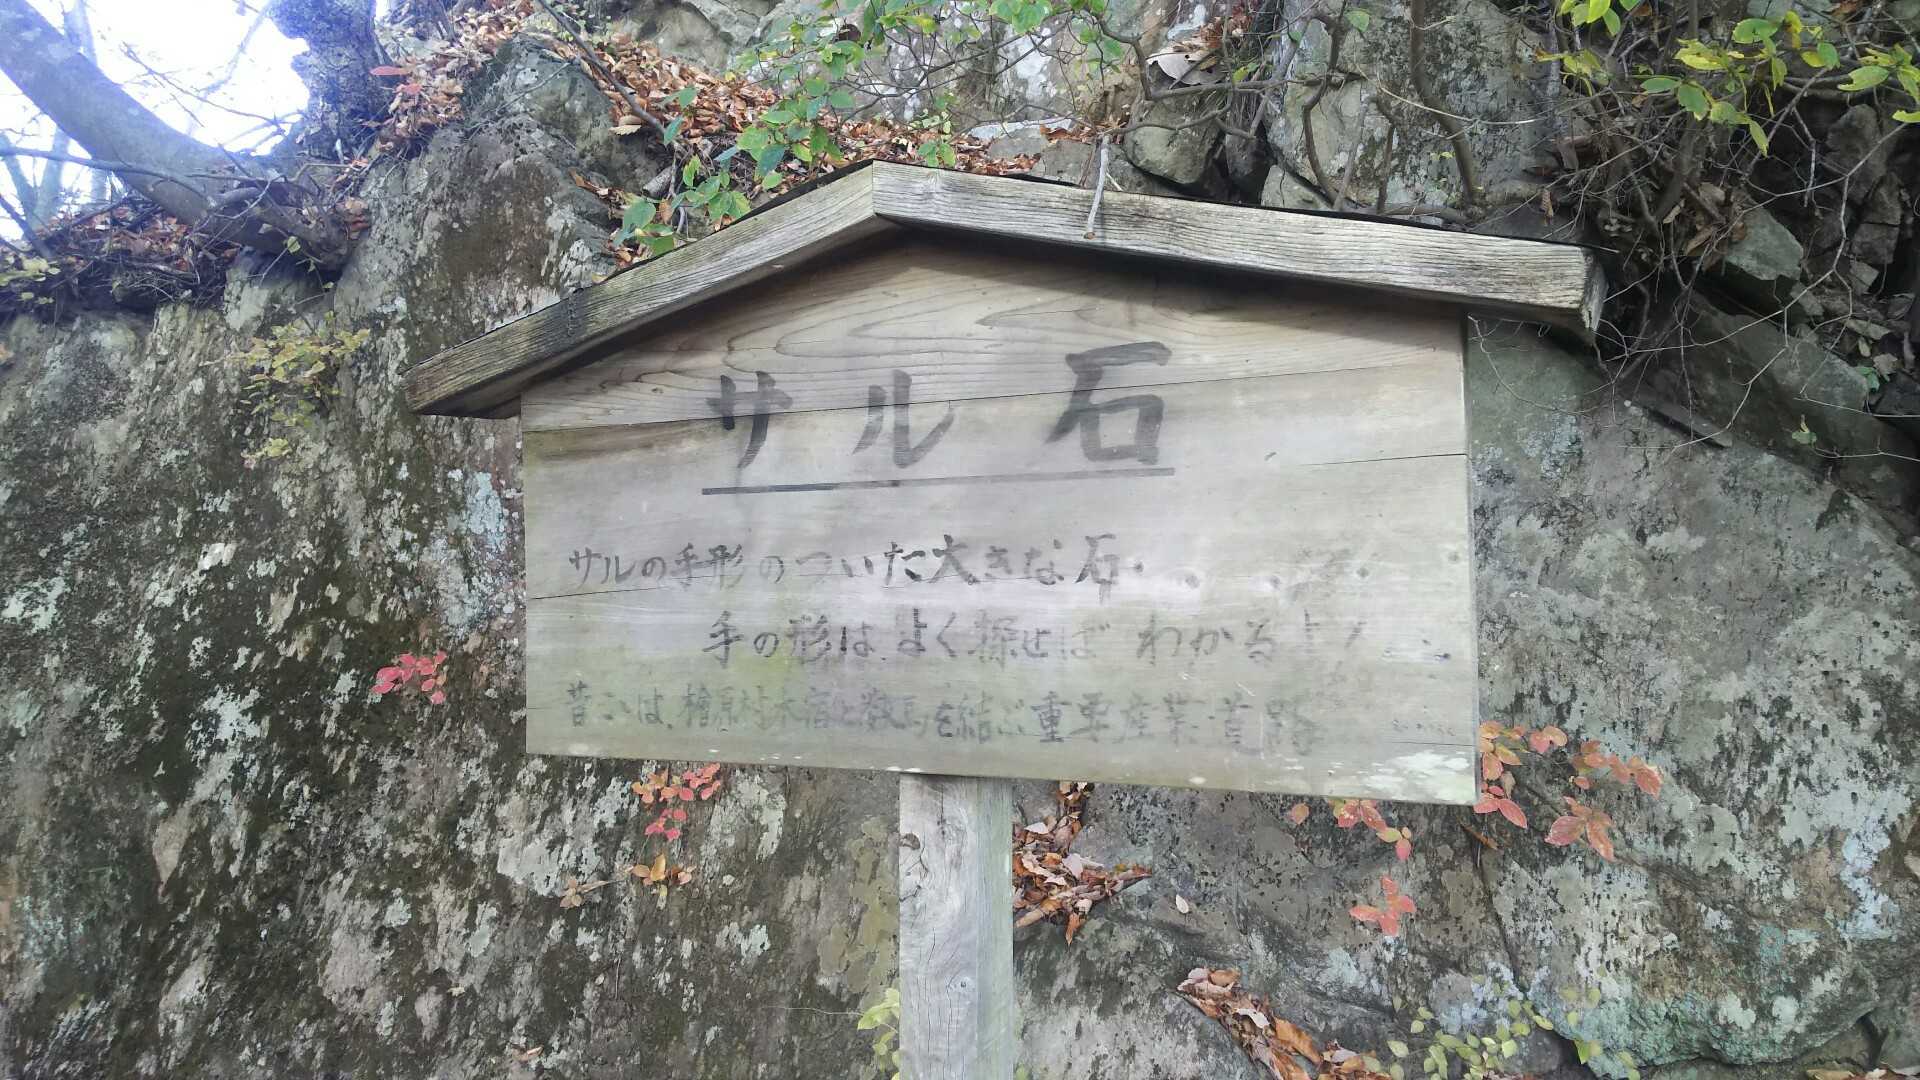 サル石
サルの手形のついた大きな石.
手の形は よく探せば わかるよ!
昔この道は、檜原村本宿と数馬を結ぶ重要産業道路